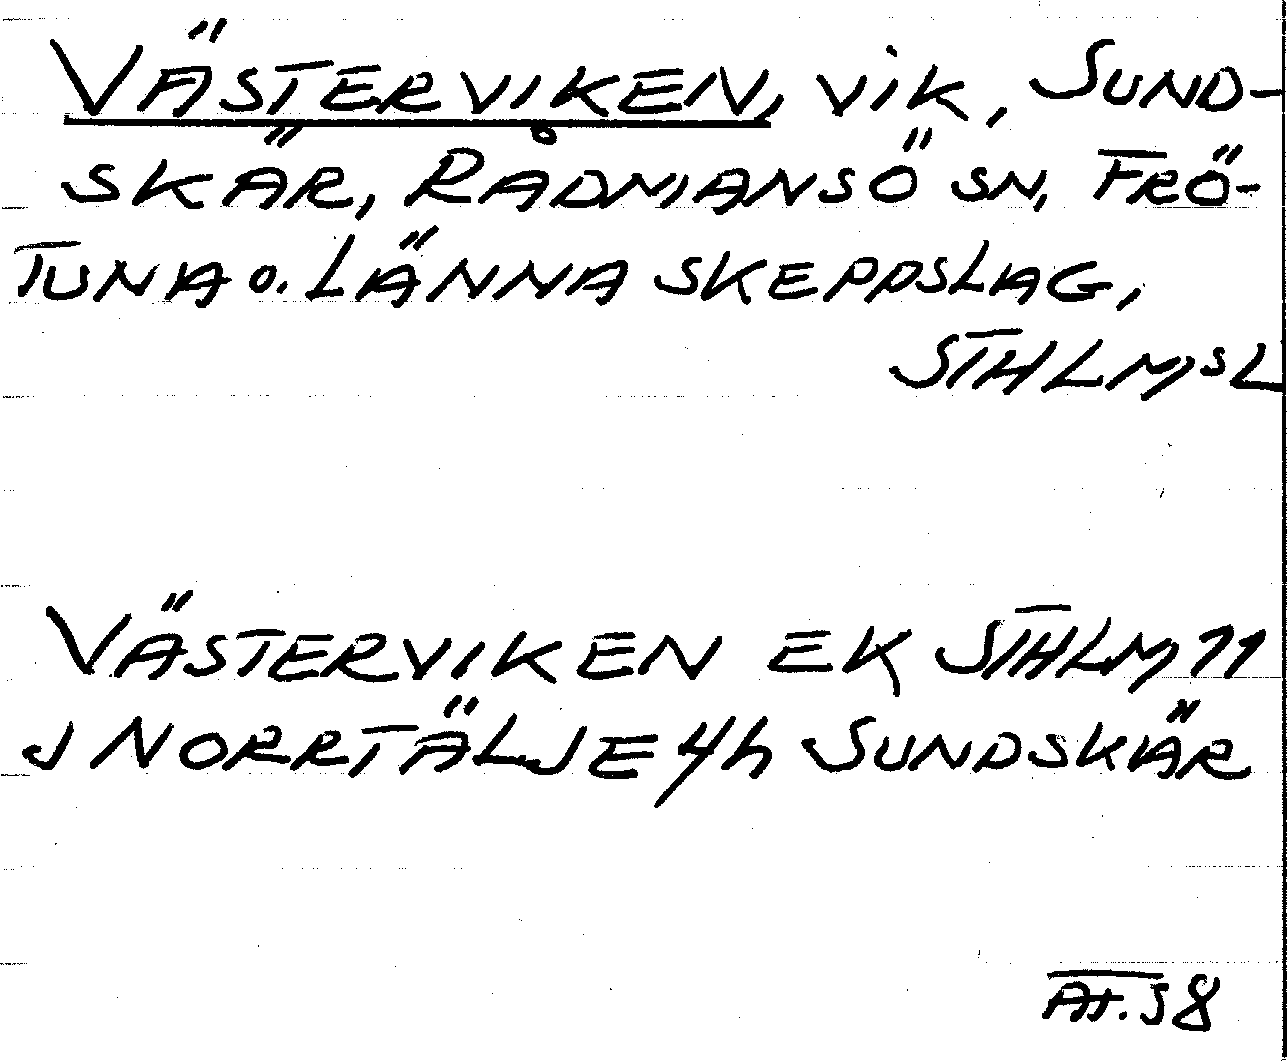 VÄSTERVIKEN, vik, SUND-
SKÄR, RÅDMANSÖ SN, FRÖ-
TUNA o. LÄNNA SKEPPSLAG,
STHLMSL
VÄSTERVIKEN EK STHLM 11
J NORRTÄLJE 4h SUNDSKÄR